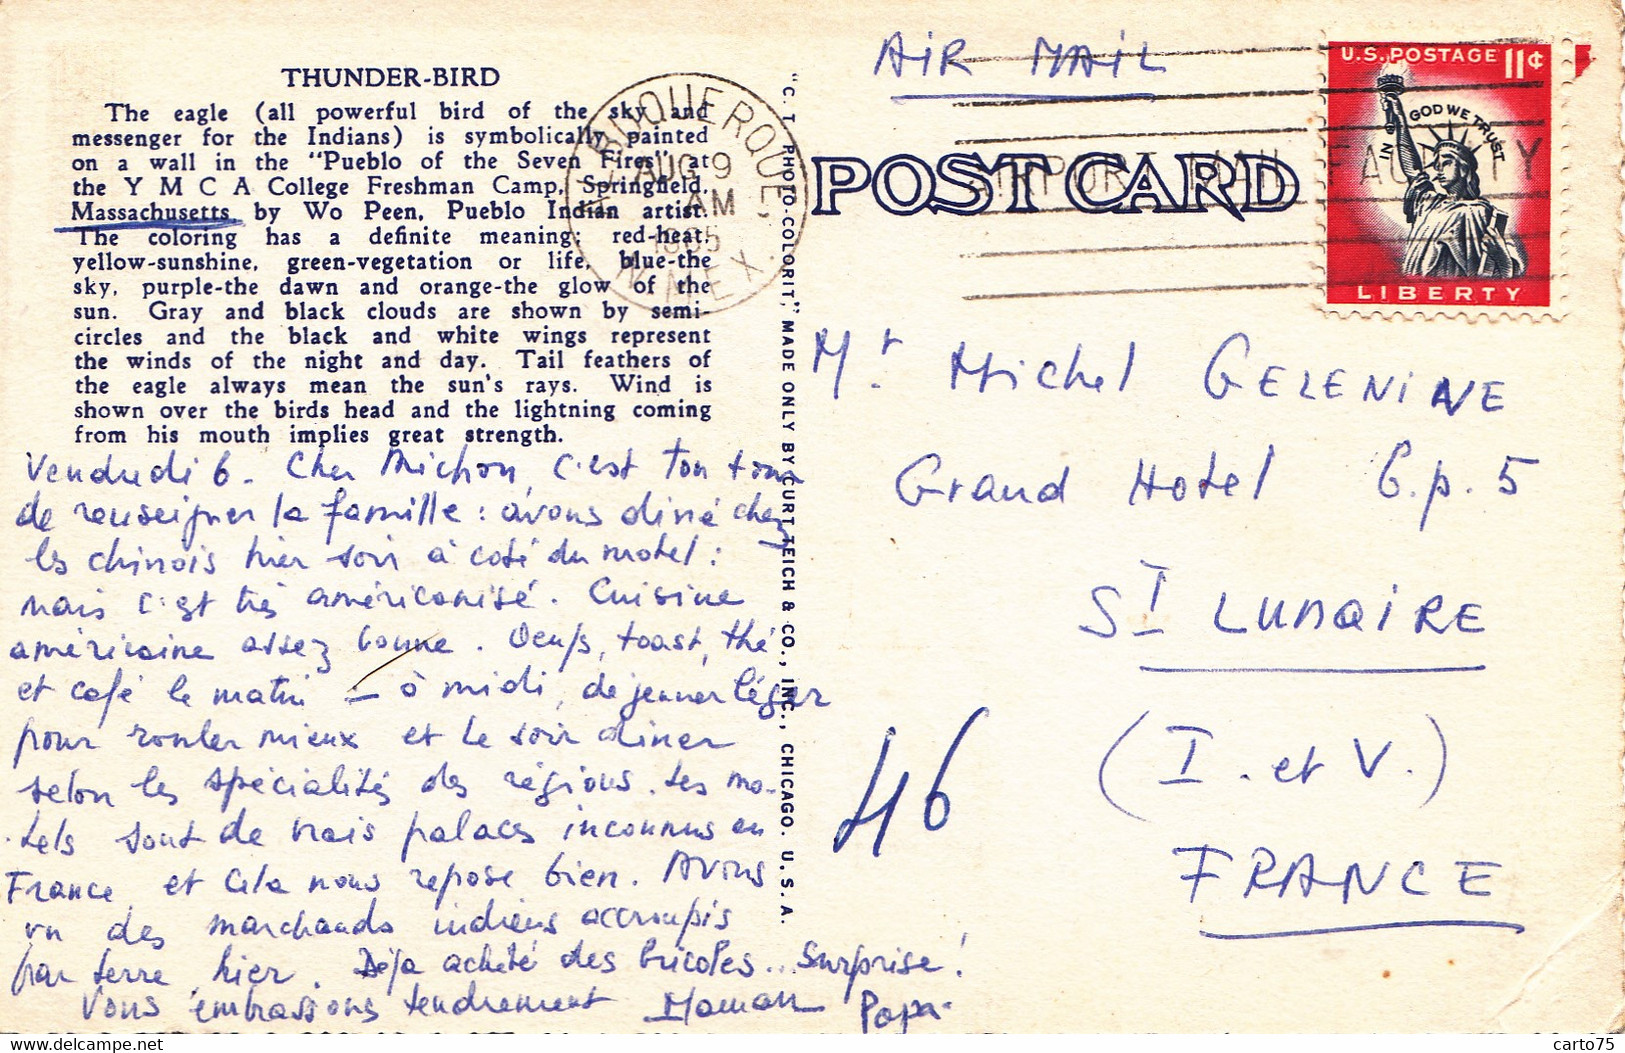 THUNDER-BIRD
The eagle (all powerful bird of the sky and
messenger for the Indians) is symbolically painted
on a wall in the "Pueblo of the Seven Fires" at
the Y M C A College Freshman Camp, Springfield,
Massachusetts, by Wo Peen, Pueblo Indian artist.
The coloring has a definite meaning: red-heat,
yellow-sunshine, green-vegetation or life, blue-the
sky, purple-the dawn and orange-the glow of the
sun. Gray and black clouds are shown by semi-
circles and the black and white wings represent
the winds of the night and day. Tail feathers of
the eagle always mean the sun's rays. Wind is
shown over the birds head and the lightning coming
from his mouth implies great strength.
Vendredi 6. Cher Michon, c'est ton tour
de renseigner la famille : avons diné chez
les chinois hier soir à coté du motel :
mais c'est très américanisé. Cuisine
américaine assez bonne. Oeufs, toast, thé
et café le matin — à midi, dejeuner léger
pour rouler mieux et le soir diner
selon les spécialités des régions. Les mo-
tels sont de vrais palaces inconnus en
France et cela nous repose bien. Avons
vu des marchands indiens accroupis
par terre, hier. Déja acheté des bricoles... Surprise!
Vous embrassons tendrement Maman Papa
"C. T. PHOTO-COLORIT," MADE ONLY BY CURT TEICH & CO., INC., CHICAGO. U.S.A.
ALBUQUERQUE,
AUG 9
AM
1965
N. MEX.
AIR MAIL
POST CARD
AIRPORT MAIL FACILITY
U.S. POSTAGE 11¢
IN GOD WE TRUST
LIBERTY
Mr. Michel GELENINE
Grand Hotel C.p. 5
ST LUNAIRE
(I. et V.)
FRANCE
46
carto75